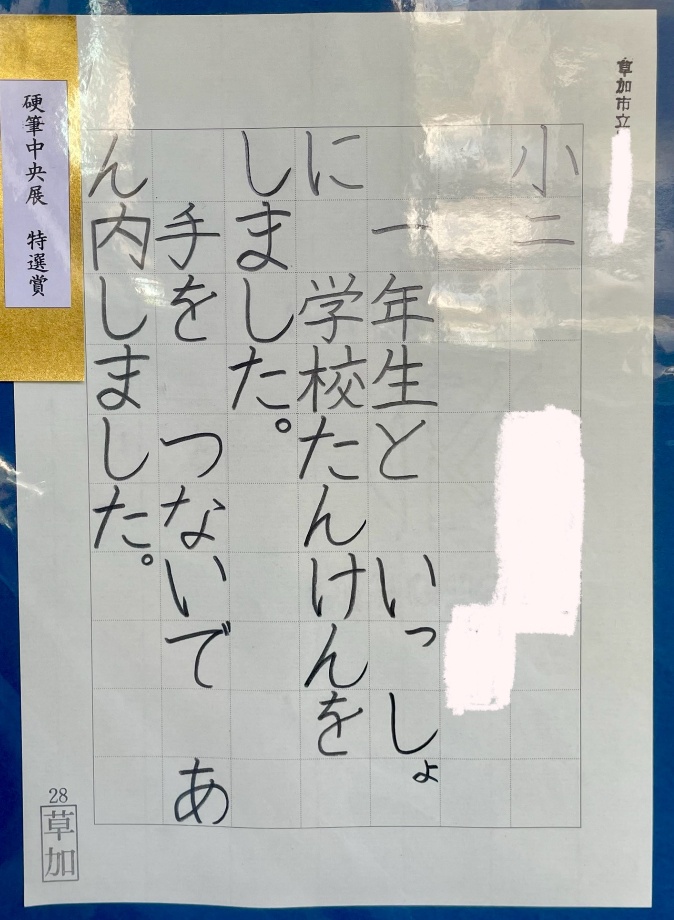 草加市立
小二
一年生と　いっしょ
に　学校たんけんを
しました。
手を　つないで　あ
ん内しました。
硬筆中央展　特選賞
28
草加